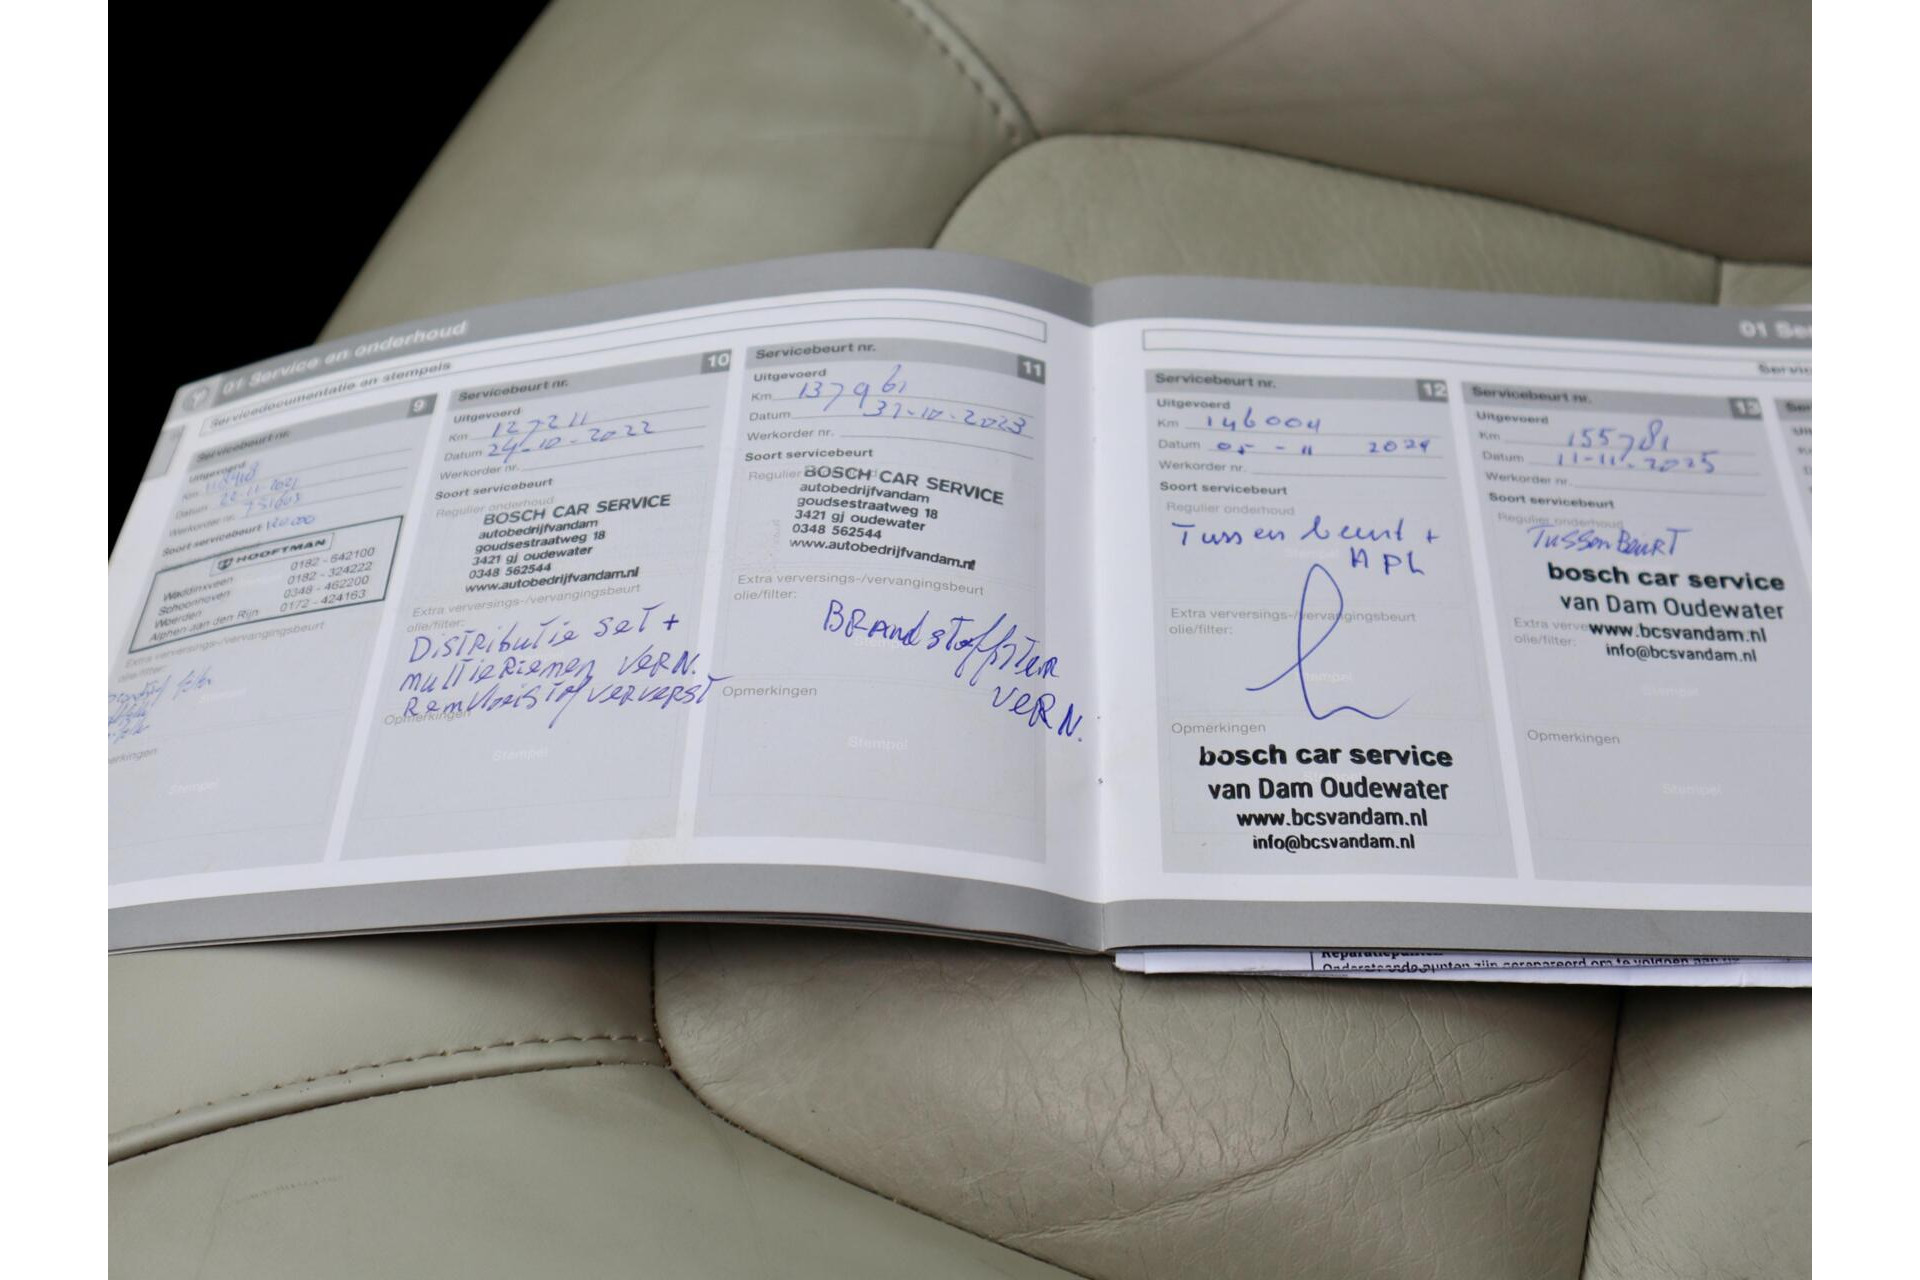 01 Service en onderhoud
Servicedocumentatie en stempels
Servicebeurt nr. 9
Uitgevoerd
Km
Datum
Werkorder nr.
Soort servicebeurt 120.000
HOOFTMAN
Waddinxveen 0182 - 642100
Schoonhoven 0182 - 324222
Woerden 0348 - 462200
Alphen aan den Rijn 0172 - 424163
Extra verversings-/vervangingsbeurt
olie/filter:
Stempel
Servicebeurt nr. 10
Uitgevoerd
Km 127211
Datum 24-10-2022
Werkorder nr.
Soort servicebeurt
Regulier onderhoud
BOSCH CAR SERVICE
autobedrijfvandam
goudsestraatweg 18
3421 gj oudewater
0348 562544
www.autobedrijfvandam.nl
Extra verversings-/vervangingsbeurt
olie/filter:
Distributie set +
multiriemen vern.
Remvloeistof ververst
Opmerkingen
Stempel
Servicebeurt nr. 11
Uitgevoerd
Km 137961
Datum 31-10-2023
Werkorder nr.
Soort servicebeurt
Regulier
BOSCH CAR SERVICE
autobedrijfvandam
goudsestraatweg 18
3421 gj oudewater
0348 562544
www.autobedrijfvandam.nl
Extra verversings-/vervangingsbeurt
olie/filter:
Brandstoffilter
vern.
Opmerkingen
Stempel
01 Se
Servic
Servicebeurt nr. 12
Uitgevoerd
Km 146004
Datum 05-11 2024
Werkorder nr.
Soort servicebeurt
Regulier onderhoud
Tussenbeurt +
APk
Extra verversings-/vervangingsbeurt
olie/filter:
Opmerkingen
bosch car service
van Dam Oudewater
www.bcsvandam.nl
info@bcsvandam.nl
Servicebeurt nr. 13
Uitgevoerd
Km 155781
Datum 11-11-2025
Werkorder nr.
Soort servicebeurt
Regulier onderhoud
TussenBeurt
bosch car service
van Dam Oudewater
www.bcsvandam.nl
info@bcsvandam.nl
Extra verve
olie/filter:
Stempel
Opmerkingen
Stempel
Reparatiepunten
Onderstaande punten zijn gerepareerd om te voldoen aan de